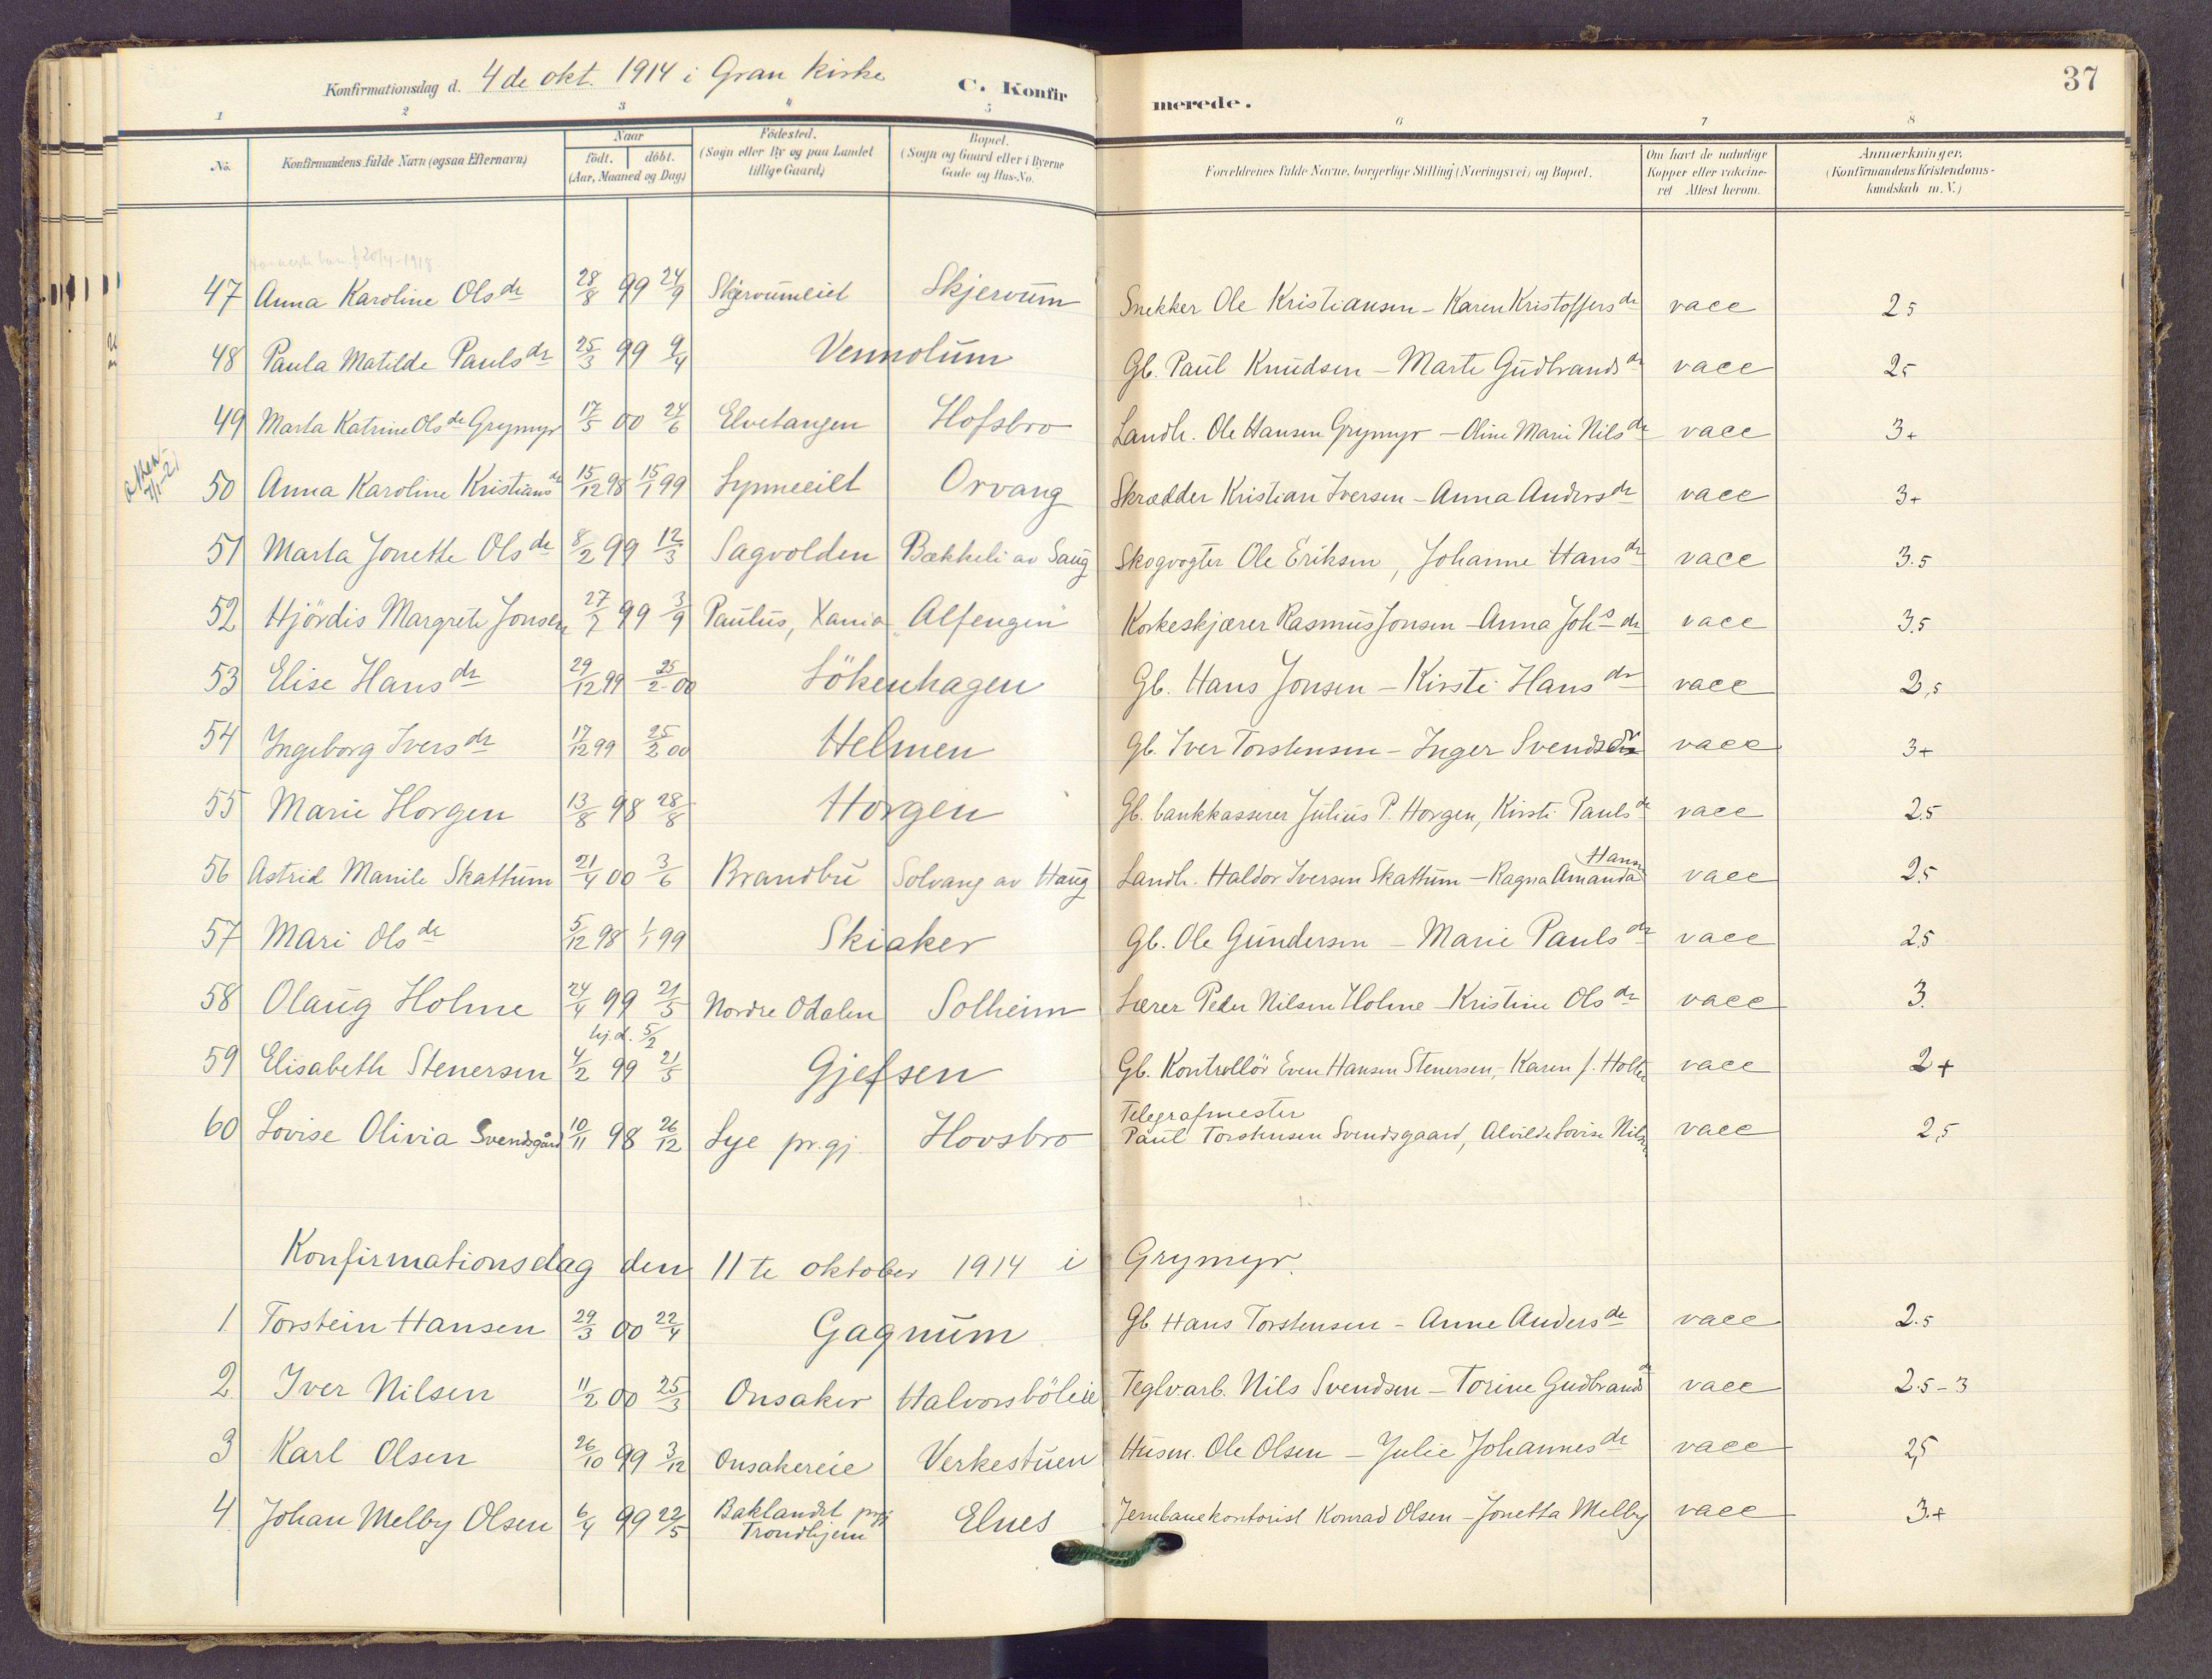 37
Konfirmationsdag d. 4 de okt. 1914 i Gran kirke C. Konfirmerede.
1 2 3 4 5 6 7 8
No. Konfirmandens fulde Navn (ogsaa Efternavn) Naar födt. döbt. (Aar, Maaned og Dag) Födested. (Sogn eller By og paa Landet tillige Gaard) Bopæl. (Sogn og Gaard eller i Byerne Gade og Hus-No. Forældrenes fulde Navne, borgerlige Stilling (Næringsvei) og Bopæl. Om havt de naturlige Kopper eller vakcineret Attest herom. Anmærkninger. (Konfirmandens Kristendomskundskab m. V.)
20/4-1918
47 Anna Karoline Olsdr 28/8 99 24/9 Skjervumeiet Skjervum Snekker Ole Kristiansen - Karen Kristoffersdr vacc 25
48 Paula Matilde Paulsdr 25/3 99 9/4 Vennolum Gb. Paul Knudsen - Marte Gudbrandsdr vacc 25
49 Marta Katrine Olsdr Grymyr 17/5 00 24/6 Elvetangen Hofsbro Landh. Ole Hansen Grymyr - Oline Marie Nilsdr vacc 3+
50 Anna Karoline Kristiansdr 15/12 98 15/1 99 Lynneeiet Orvang Skrædder Kristian Iversen - Anna Andersdr vacc 3+
51 Marta Jonette Olsdr 8/2 99 12/3 Sagvolden Bækkeli av Saug Skogvogter Ole Eriksen, Johanne Hansdr vacc 3.5
52 Hjördis Margrete Jonsen 27/7 99 3/9 Paulus, Xania Alfengen Korkeskjærer Rasmus Jonsen - Anna Johsdr vacc 3.5
53 Elise Hansdr 29/12 99 25/2 00 Lökenhagen Gb. Hans Jonsen - Kirsti Hansdr vacc 2,5
54 Ingeborg Iversdr 17/12 99 25/2 00 Helmen Gb. Iver Torstensen - Inger Svendsdr vacc 3+
55 Marie Horgen 13/8 98 28/8 Horgen Gb. bankkasserer Julius P. Horgen, Kirsti Paulsdr vacc 2.5
56 Astrid Manile Skattum 21/4 00 3/6 Brandbu Solvang av Haug Landh. Haldor Iversen Skattum - Ragna Amanda vacc 2.5
57 Mari Olsdr 5/12 98 1/1 99 Skiaker Gb. Ole Gundersen - Marie Paulsdr vacc 2.5
58 Olaug Holme 24/4 99 21/5 Nordre Odalen Solheim Lærer Peder Nilsen Holme - Kristine Olsdr vacc 3.
hj.d. 5/2
59 Elisabeth Stenersen 4/2 99 21/5 Gjefsen Gb. Kontrollör Even Hansen Stenersen, - Karen f. Holter vacc 2+
60 Lovise Olivia Svendsgård 10/11 98 26/12 Lye pr.gj. Hovsbro Telegrafmester Paul Torstensen Svendsgaard, Alvilde Lovise Nilsen vacc 2,5
Konfirmationsdag den 11te oktober 1914 i Grymyr.
1. Torstein Hansen 29/3 00 22/4 Gagnum Gb Hans Torstensen - Anne Andersdr vacc 2.5
2 Iver Nilsen 11/2 00 25/3 Onsaker Halvorsböleie Teglv.arb. Nils Svendsen - Torine Gudbrandsdr vacc 2.5-3
3 Karl Olsen 26/10 99 3/12 Onsakereie Verkestuen Husm. Ole Olsen - Julie Johannesdr vacc 2,5
4. Johan Melby Olsen 6/4 99 22/5 Baklandet prgj Trondhjem Elnes Jernbanekontorist Konrad Olsen - Jonetta Melby vacc 3.+